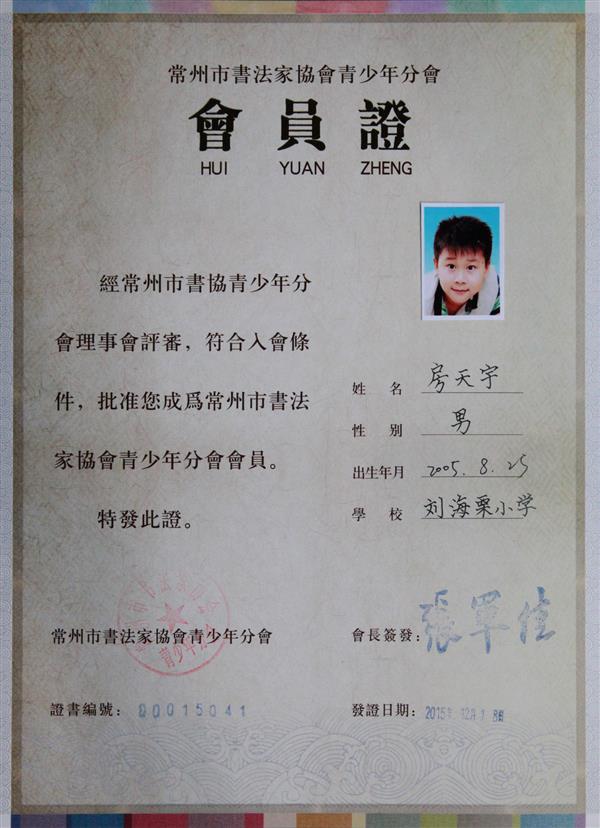 常州市書法家協會青少年分會
會員證
HUI YUAN ZHENG
經常州市書協青少年分
會理事會評審，符合入會條
件，批准您成爲常州市書法
家協會青少年分會會員。
特發此證。
姓 名 房天宇
性 別 男
出生年月 2005.8.25
學 校 刘海粟小学
常州市書法家協會青少年分會
青少年分會
會長簽發：張軍佳
證書編號：00015041
發證日期：2015年12月18日